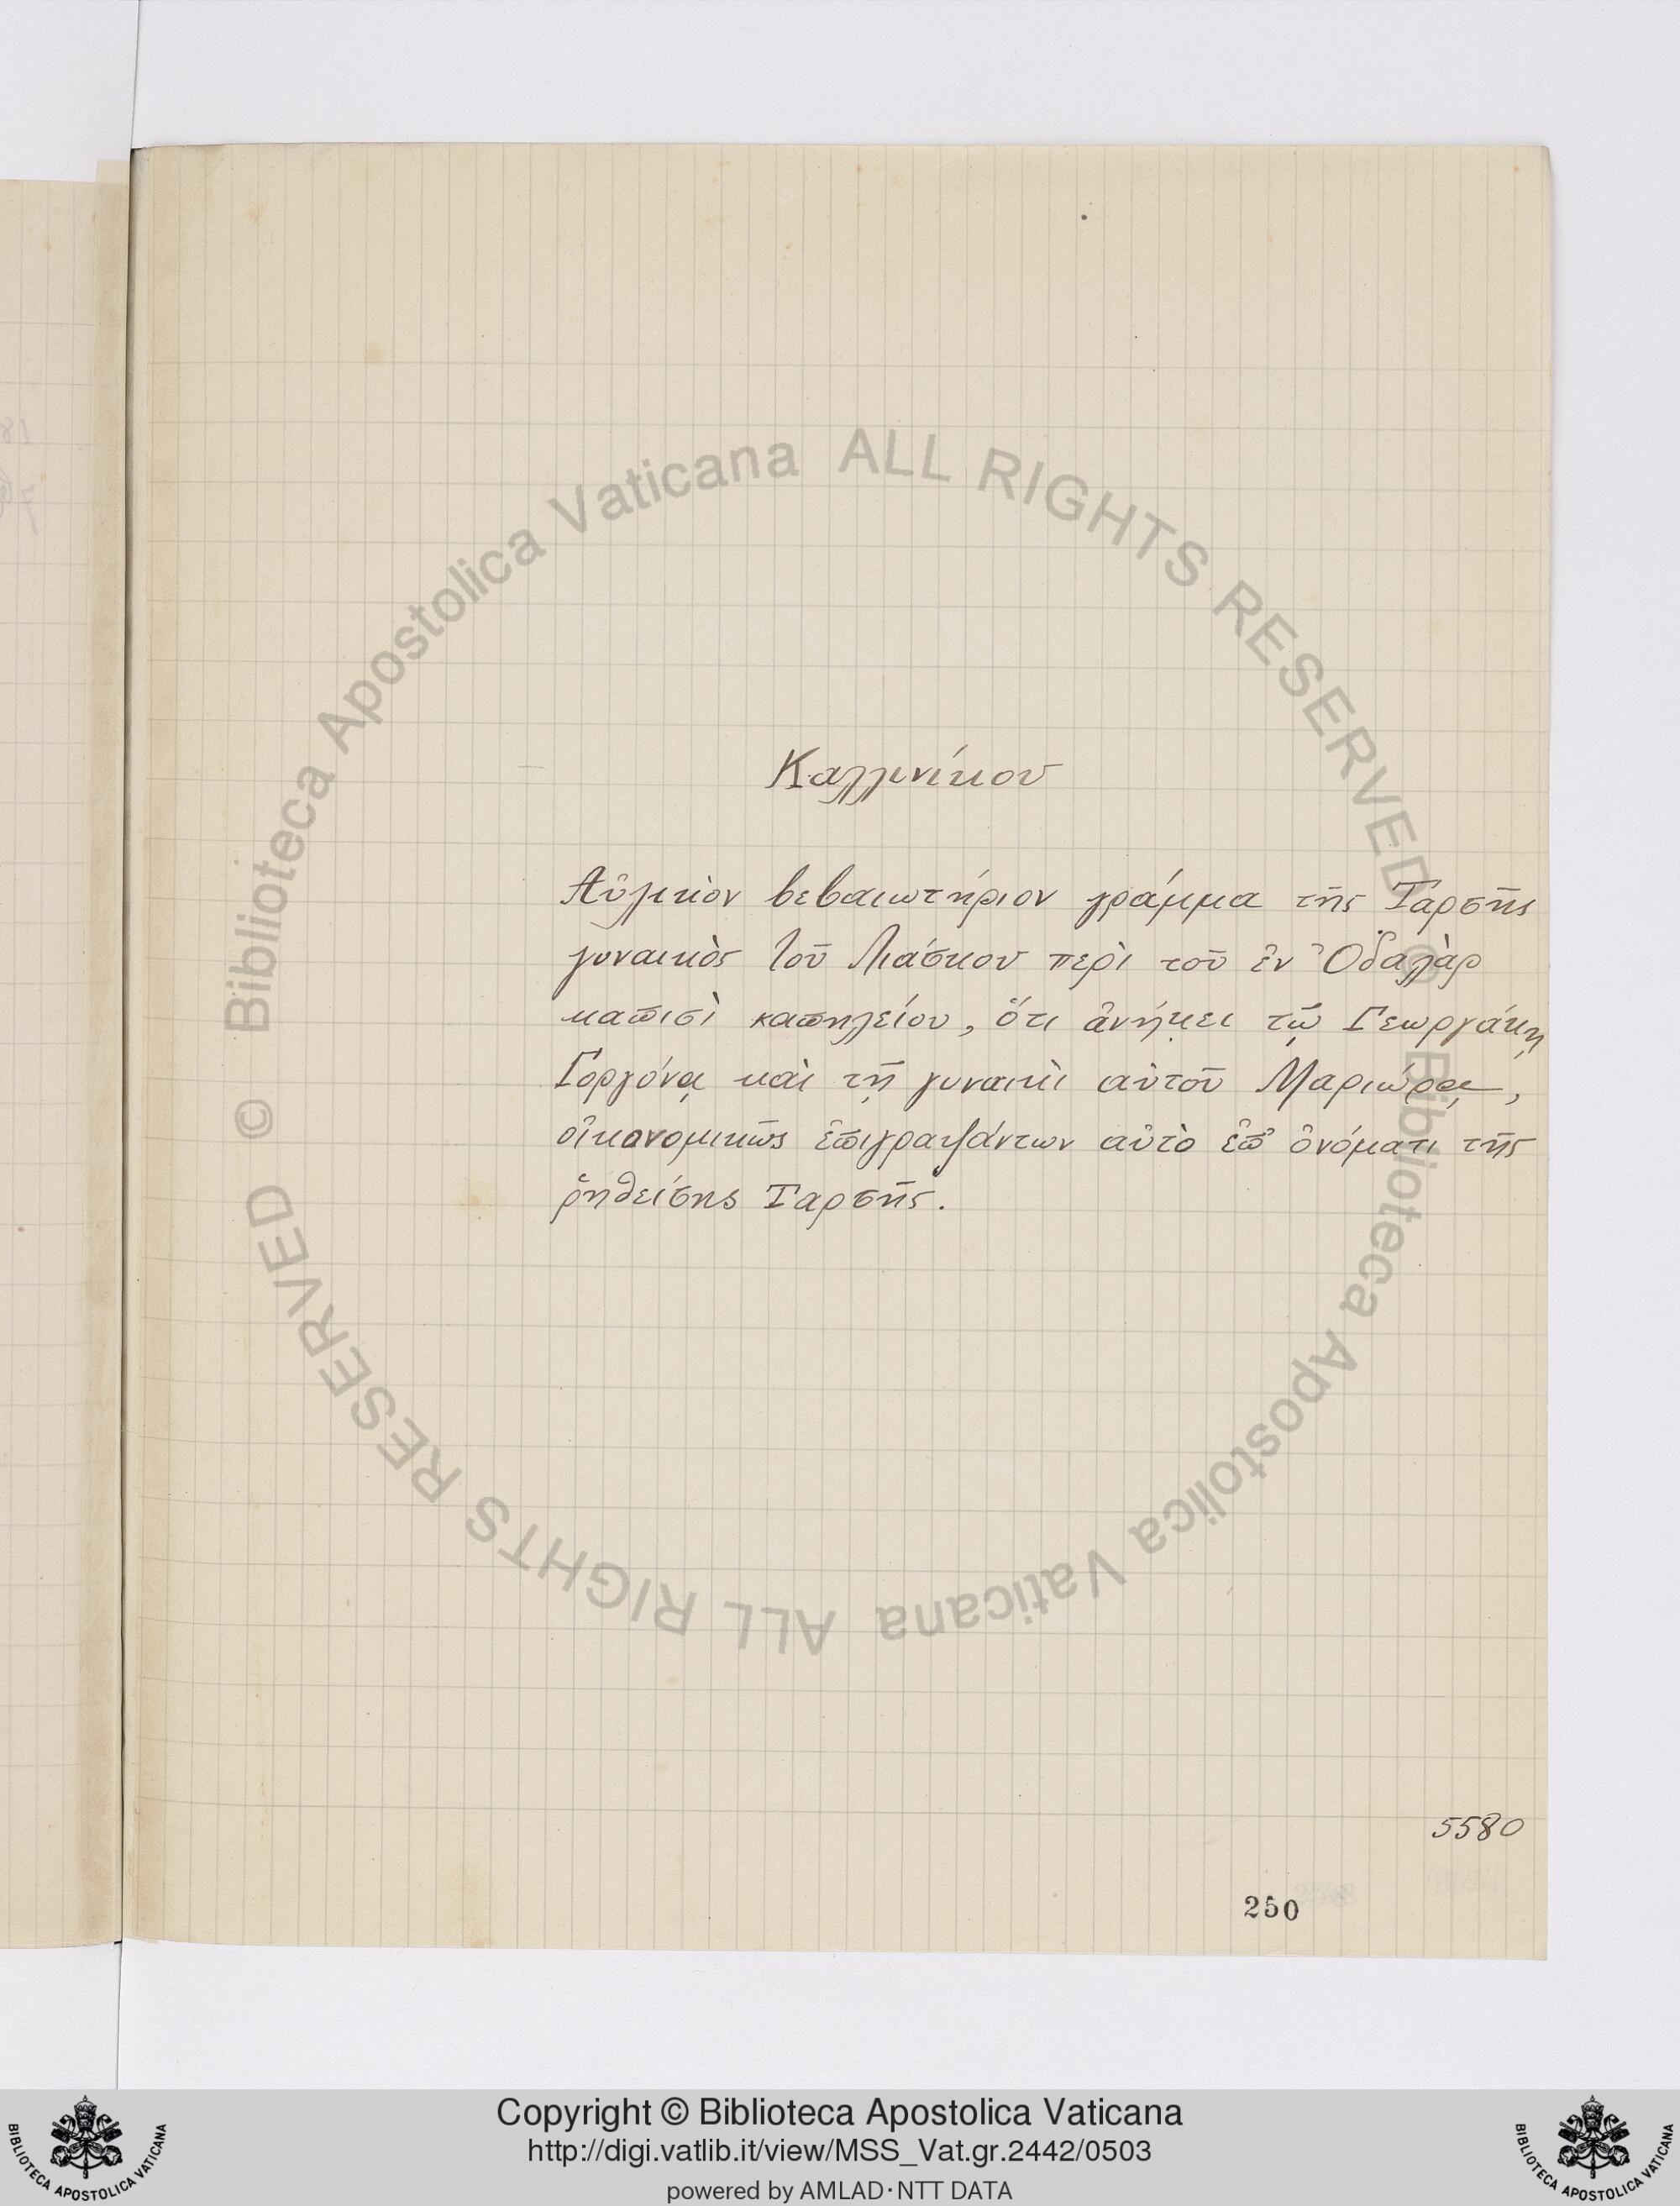 Καλλινίκου
Αὐλικὸν βεβαιωτήριον γράμμα τῆς Ταρσῆς
γυναικὸς τοῦ Λιάσκου περὶ τοῦ ἐν Ὀδαλὰρ
καπισὶ καπηλείου, ὅτι ἀνήκει τῷ Γεωργάκῃ
Γοργόνᾳ καὶ τῇ γυναικὶ αὐτοῦ Μαριώρᾳ,
οἰκονομικῶς ἐπιγραψάντων αὐτὸ ἐπ' ὀνόματι τῆς
ῥηθείσης Ταρσῆς.
5580
250
© Biblioteca Apostolica Vaticana ALL RIGHTS RESERVED
© Biblioteca Apostolica Vaticana ALL RIGHTS RESERVED
Copyright © Biblioteca Apostolica Vaticana
http://digi.vatlib.it/view/MSS_Vat.gr.2442/0503
powered by AMLAD·NTT DATA
BIBLIOTECA APOSTOLICA VATICANA
BIBLIOTECA APOSTOLICA VATICANA